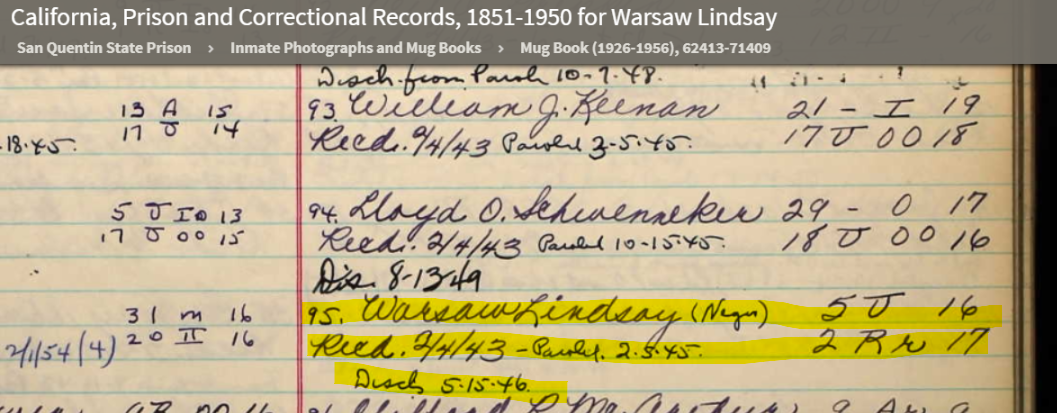 California, Prison and Correctional Records, 1851-1950 for Warsaw Lindsay
San Quentin State Prison > Inmate Photographs and Mug Books > Mug Book (1926-1956), 62413-71409
Disch. from Parole 10-7-48.
13 A 15 93. William J. Keenan 21 - I 19
17 U 14 Recd. 2/4/43 Paroled 3-5-45. 17 U OO 18
18-45.
5 U IO 13 94. Lloyd O. Schwenneker 29 - O 17
17 U OO 15 Recd. 2/4/43 Paroled 10-15-45. 18 U OO 16
Dis. 8-13-49
31 M 16 95. Warsaw Lindsay (Negro) 5 U 16
2/1/54 (4) 20 II 16 Recd. 2/4/43 - Paroled. 2-5-45. 2 R r 17
Disch 5-15-46.